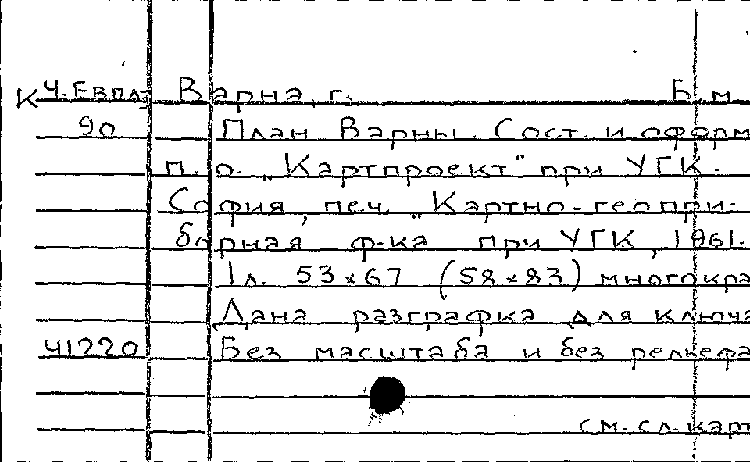 К Ч. Евпл Варна, г. Б.м.
90 План Варны. Сост. и оформ
п. о. „Картпроект" при УГК.
София, печ. „Картно-геопри-
борная ф-ка при УГК, 1961.
1л. 53×67 (58×83) многокра
Дана разграфка для ключа
41220 Без масштаба и без рельефа
см. сл. карт